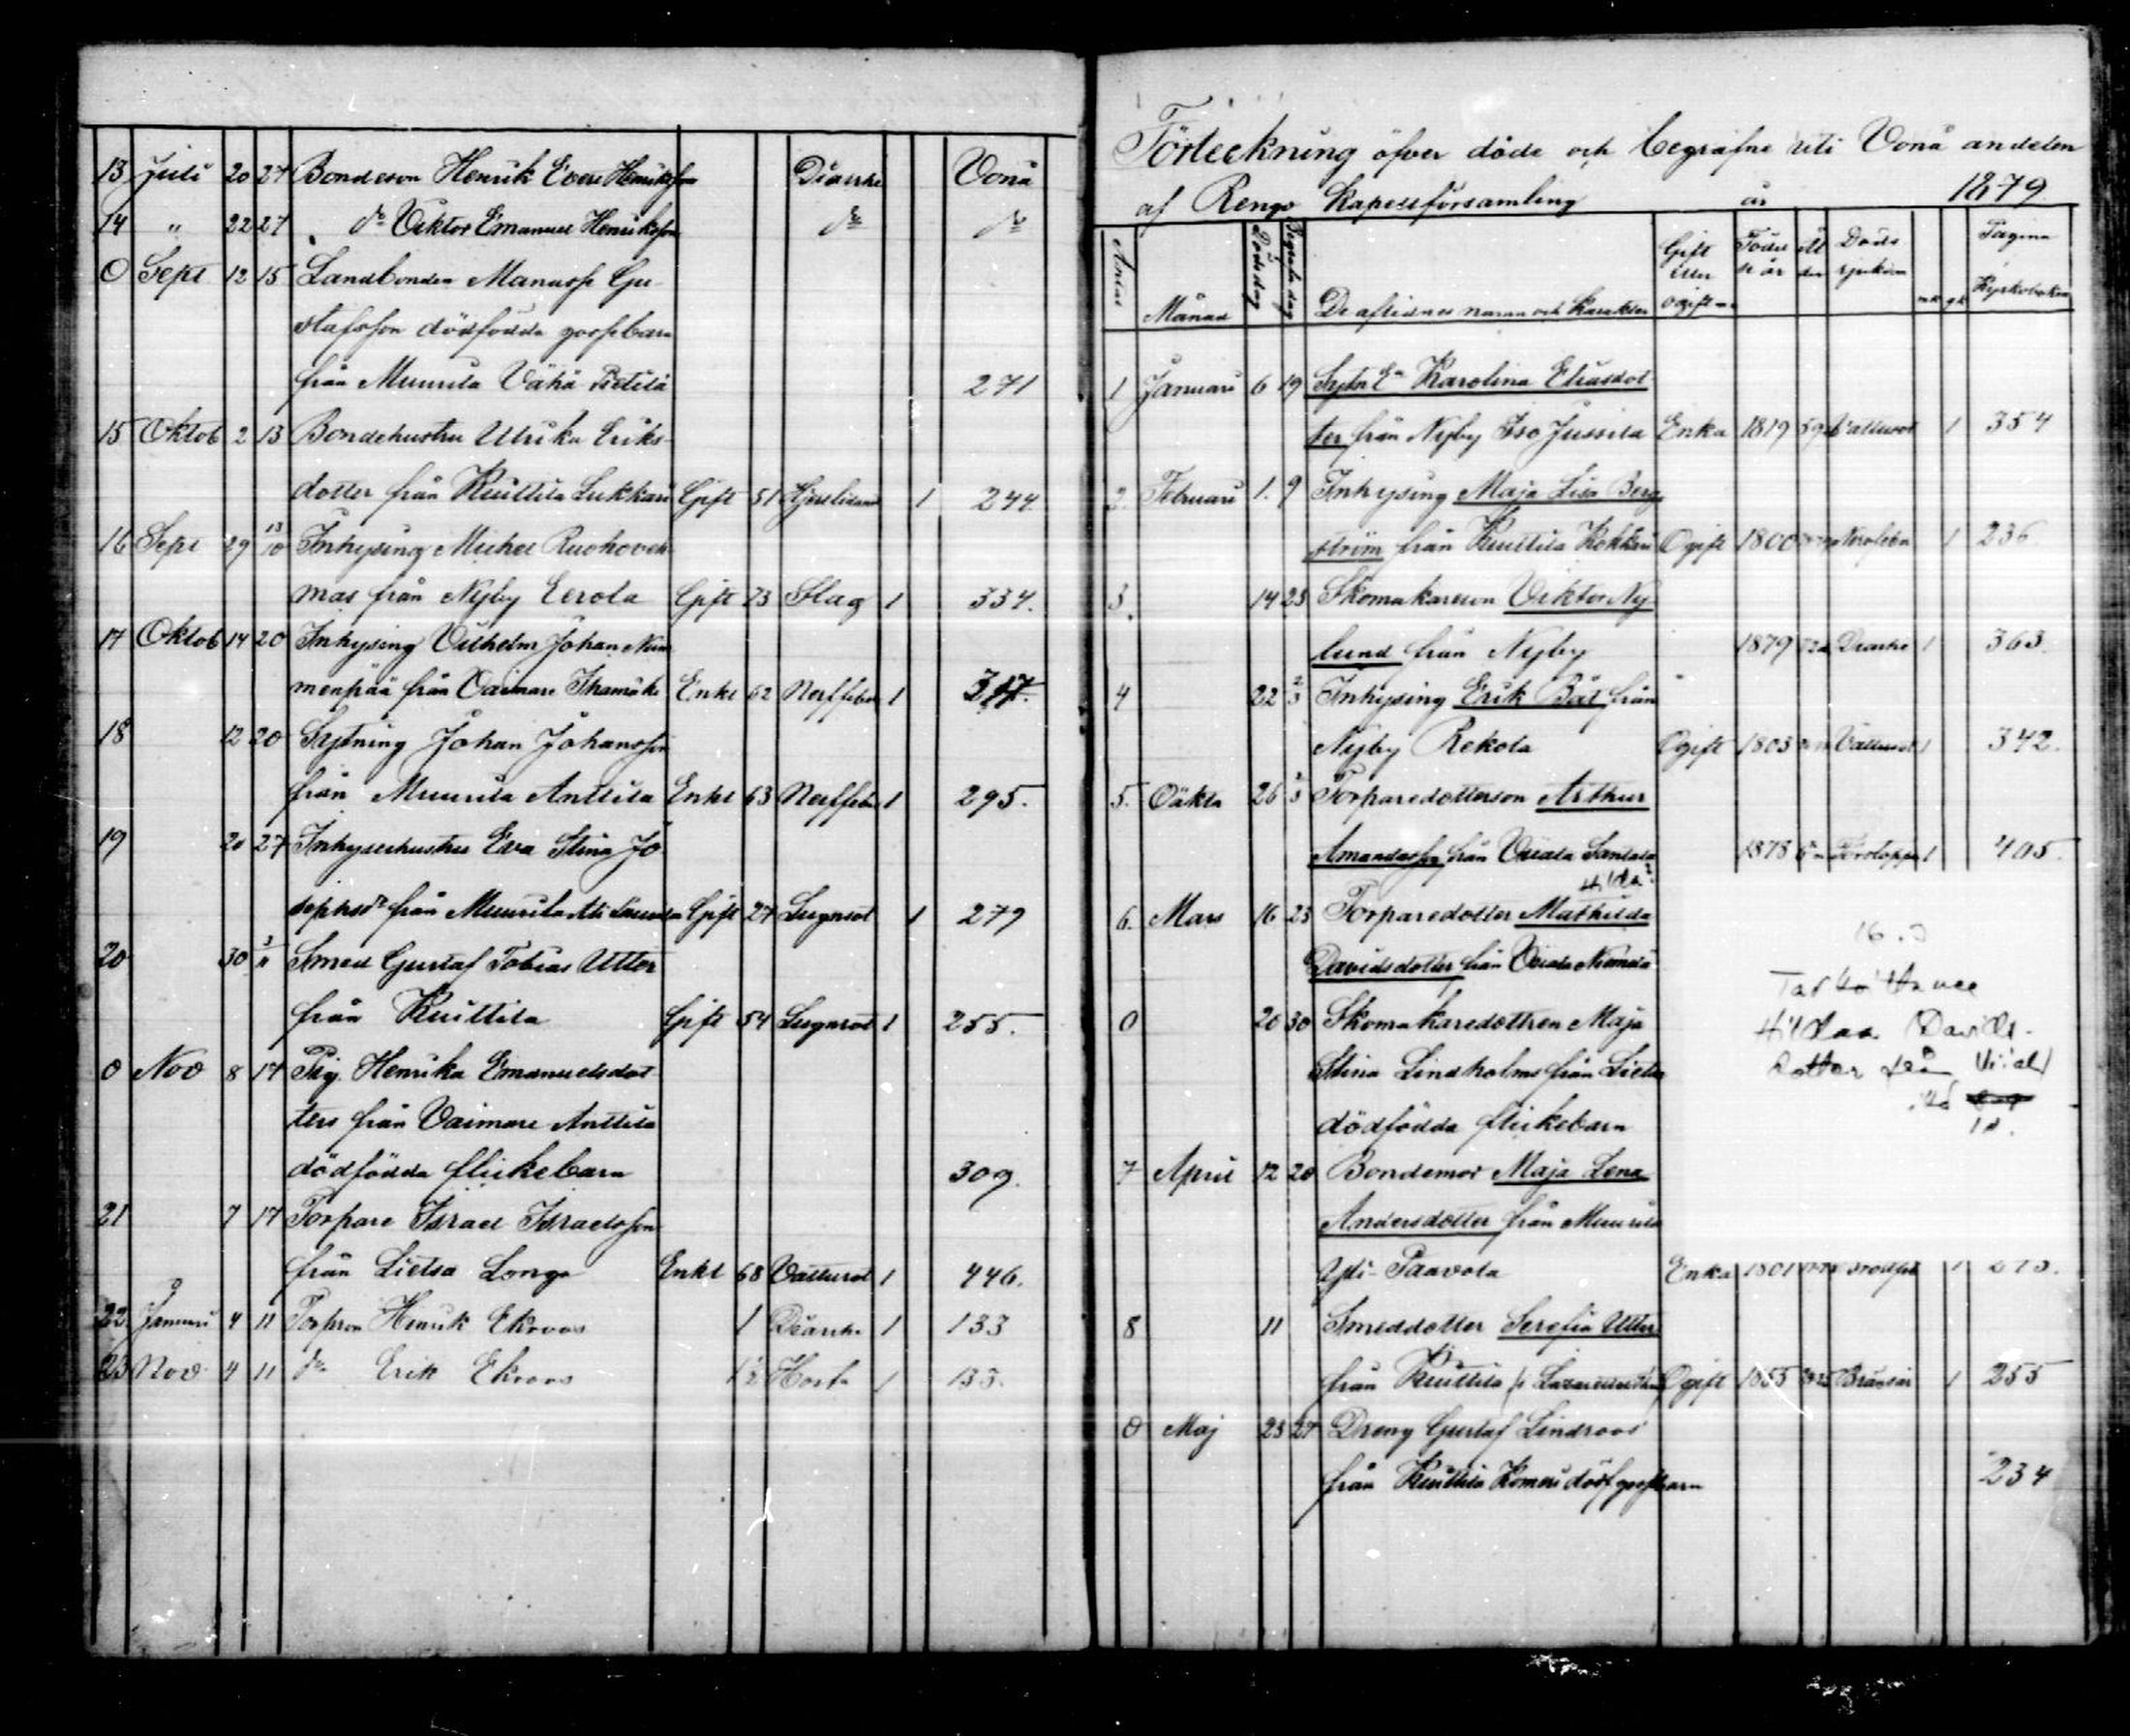 13 Juli 20 27 Bondeson Henrik Evert Henriksson Diarrhe Vonå
14 " 22 27 do Viktor Emanuel Henriksson do do
0 Sept 12 15 Landbonden Manasse Gu
stafsson dödfödda gossebarn
från Muurila Vähä Pietilä 271
15 Oktob 2 13 Bondehustru Ulrika Eriks
dotter från Kuittila Lukkari Gift 51 1 244
16 Sept 29 13/10 Inhysing Michel Ruohoveh
mas från Nyby Eerola Gift 73 Slag 1 334.
17 Oktob 14 20 Inhysing Vilhelm Johan Num
menpää från Vaimare Enkl 62 Nerffeber 1
18 12 20 Sytning Johan Johansson
från Muurila Anttila Enkl 63 Nerffeber 1 295.
19 20 27 Inhysehustru Eva Stina Jo
sephsdr från Muurila Gift 27 Lugnsot 1 279
20 30 3/11 Smed Gustaf Tobias Utter
från Kuittila Gift 54 Lugnsot 1 255.
0 Nov 8 17 Pig. Henrika Emanuelsdot
ters från Vaimare Anttila
dödfödda flickebarn 309.
21 7 17 Torpare Israel Israelsson
från Lietsa Longo Enkl 68 Vattusot 1 446.
22. Januari 4 11 Torpson Henrik Ekroos 1 Diarrhe 1 133
23 Nov 4 11 do Erik Ekroos 1½ Hosta 1 133.
Förteckning öfver döde och begrafne uti Vonå andelen
af Rengo Kapellförsamling år 1879
Månad Dödsdag Begrafn dag De aflidnes namn och karakter Gift eller ogift Födel se år Ål der Döds sjukdom mk gk Pagina Kyrkoboken
1 Januari 6 19 Sytn Ea Karolina Eliasdot
ter från Nyby Iso Jussila Enka 1819 59 Vattusot 1 354
2. Februari 1. 9 Inhysing Maja Lisa Berg
ström från Kuittila Ogift 1800 Nerffeber 1 236
3. 14 23 Skomakareson Viktor Ny
lund från Nyby 1879 Diarrhe 1 363.
4 22 2/3 Inhysing Erik Båt från
Nyby Rekola Ogift 1803 Vattusot 1 342.
5. Oäkta 26 2/3 Torparedotterson Arthur
Amandasson från Viiala Santala 1878 1 405.
Hilda
6. Mars 16 23 Torparedotter Mathilda
Davidsdotter från Viiala
16.3
Hildaa Davids-
dotter från Viial
0 20 30 Skomakaredottren Maja
Stina Lindholms från Lietsa
dödfödda flickebarn
7 April 12 20 Bondemor Maja Lena
Andersdotter från Muurila
Yli-Paavola Enka 1801 1 273.
8 11 Smeddotter Serefia Utter
från Kuittila Ogift 1855 1 255
0 Maj 23 27 Dreng Gustaf Lindroos
från Kuittila 234